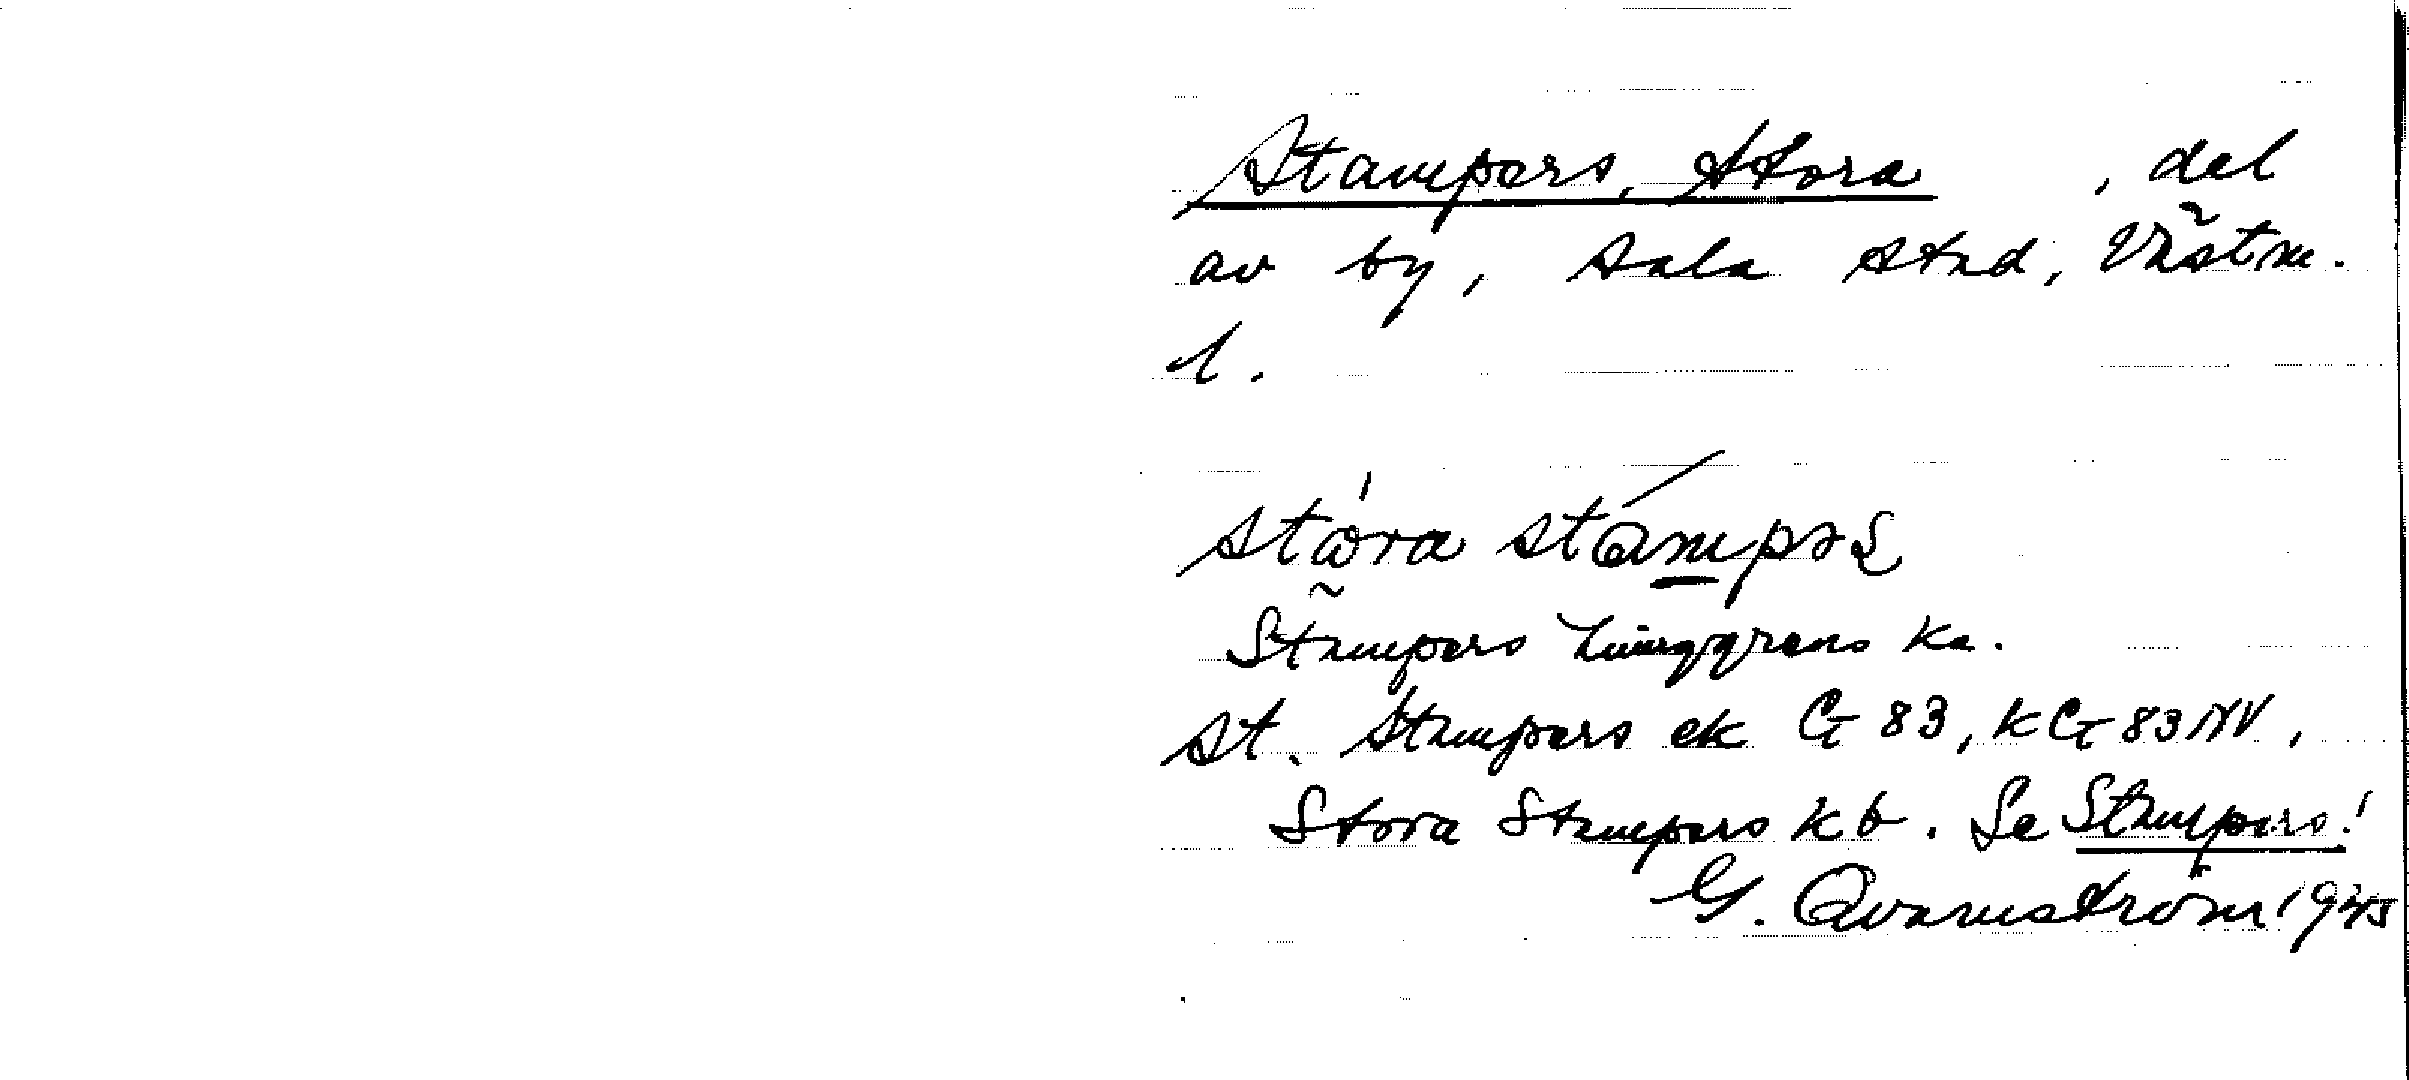 Stampers, Stora, del
av by, Sala stad, Västm.
l.
stɷ́ra stámpəs
Stampers Ljunggrens ka.
St. Stampers ek G 83, kG 83 NV,
Stora Stampers kb. Se Stampers!
G. Qvarnström 1945